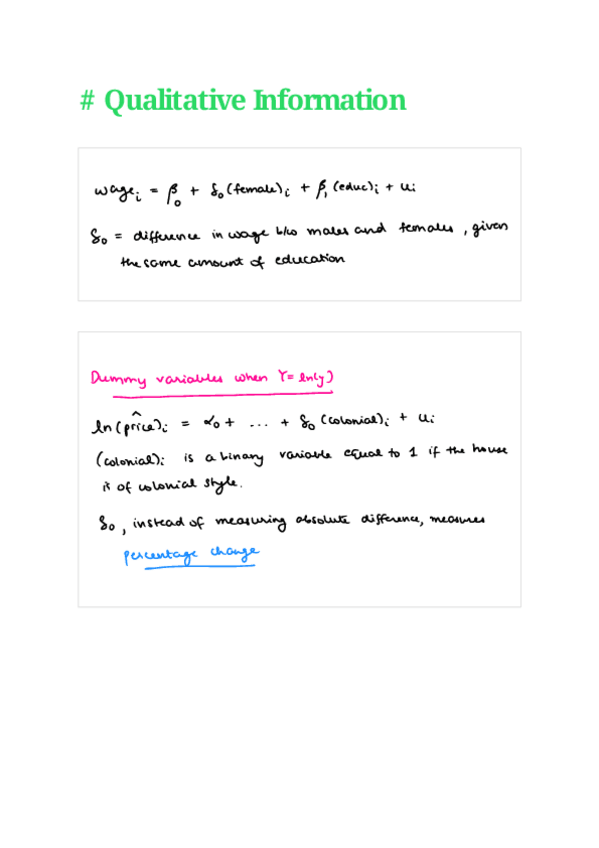 # Qualitative Information
wageᵢ = β₀ + δ₀(female)ᵢ + β₁(educ)ᵢ + uᵢ
δ₀ = difference in wage b/w males and females, given
the same amount of education
Dummy variables when Y = ln(y)
ln(pricê)ᵢ = α₀ + ... + δ₀(colonial)ᵢ + uᵢ
(colonial)ᵢ is a binary variable equal to 1 if the house
is of colonial style.
δ₀, instead of measuring absolute difference, measures
percentage change